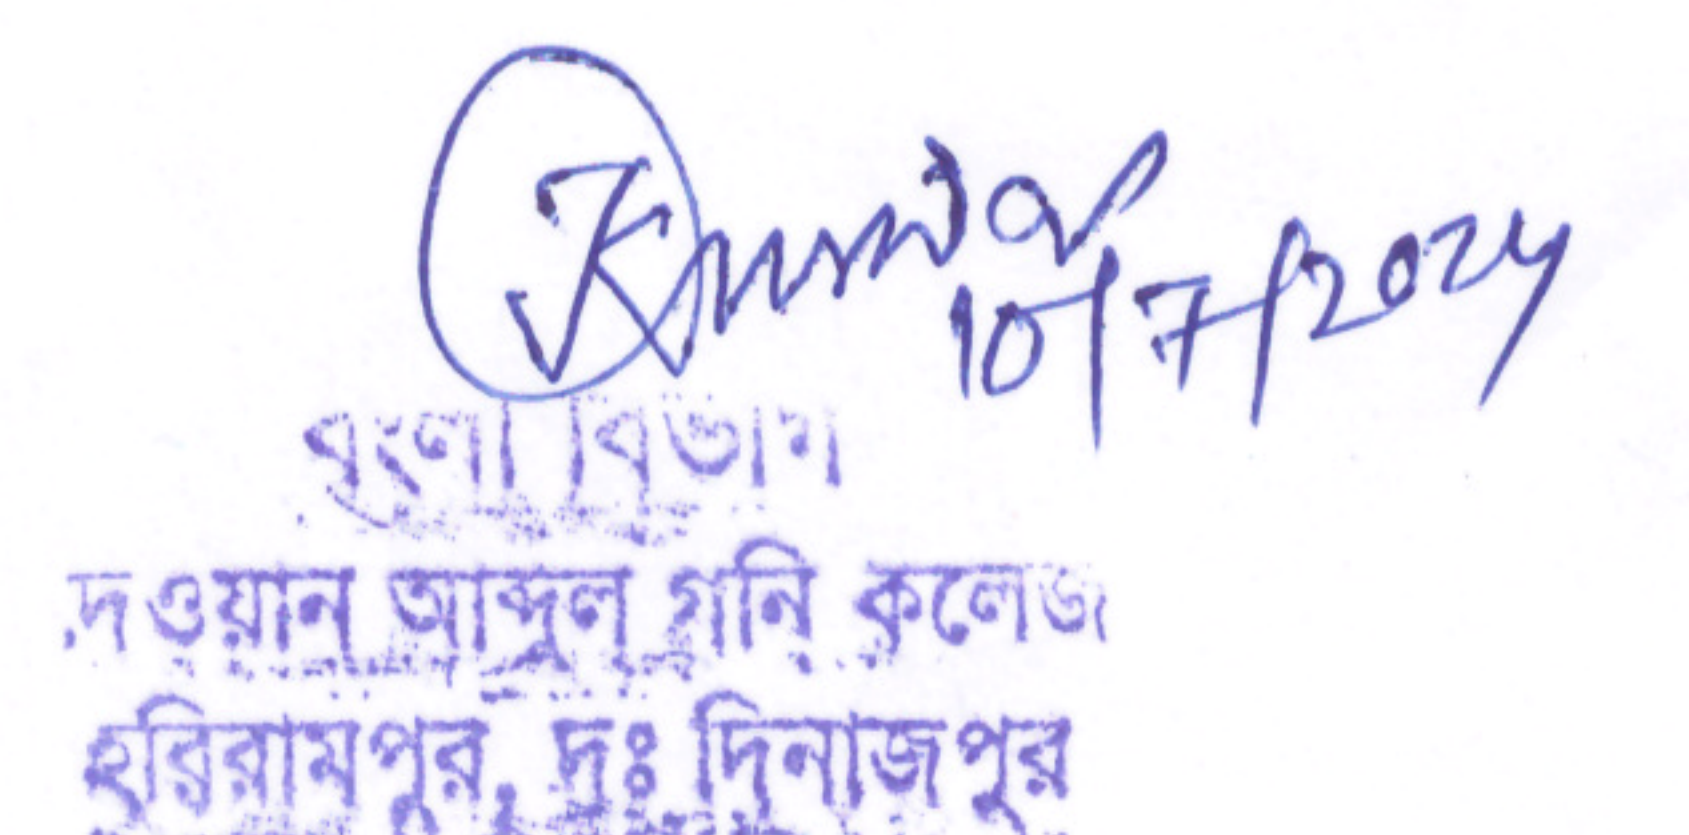 10/7/2024
বাংলা বিভাগ
দেওয়ান আব্দুল গনি কলেজ
হরিরামপুর, দঃ দিনাজপুর